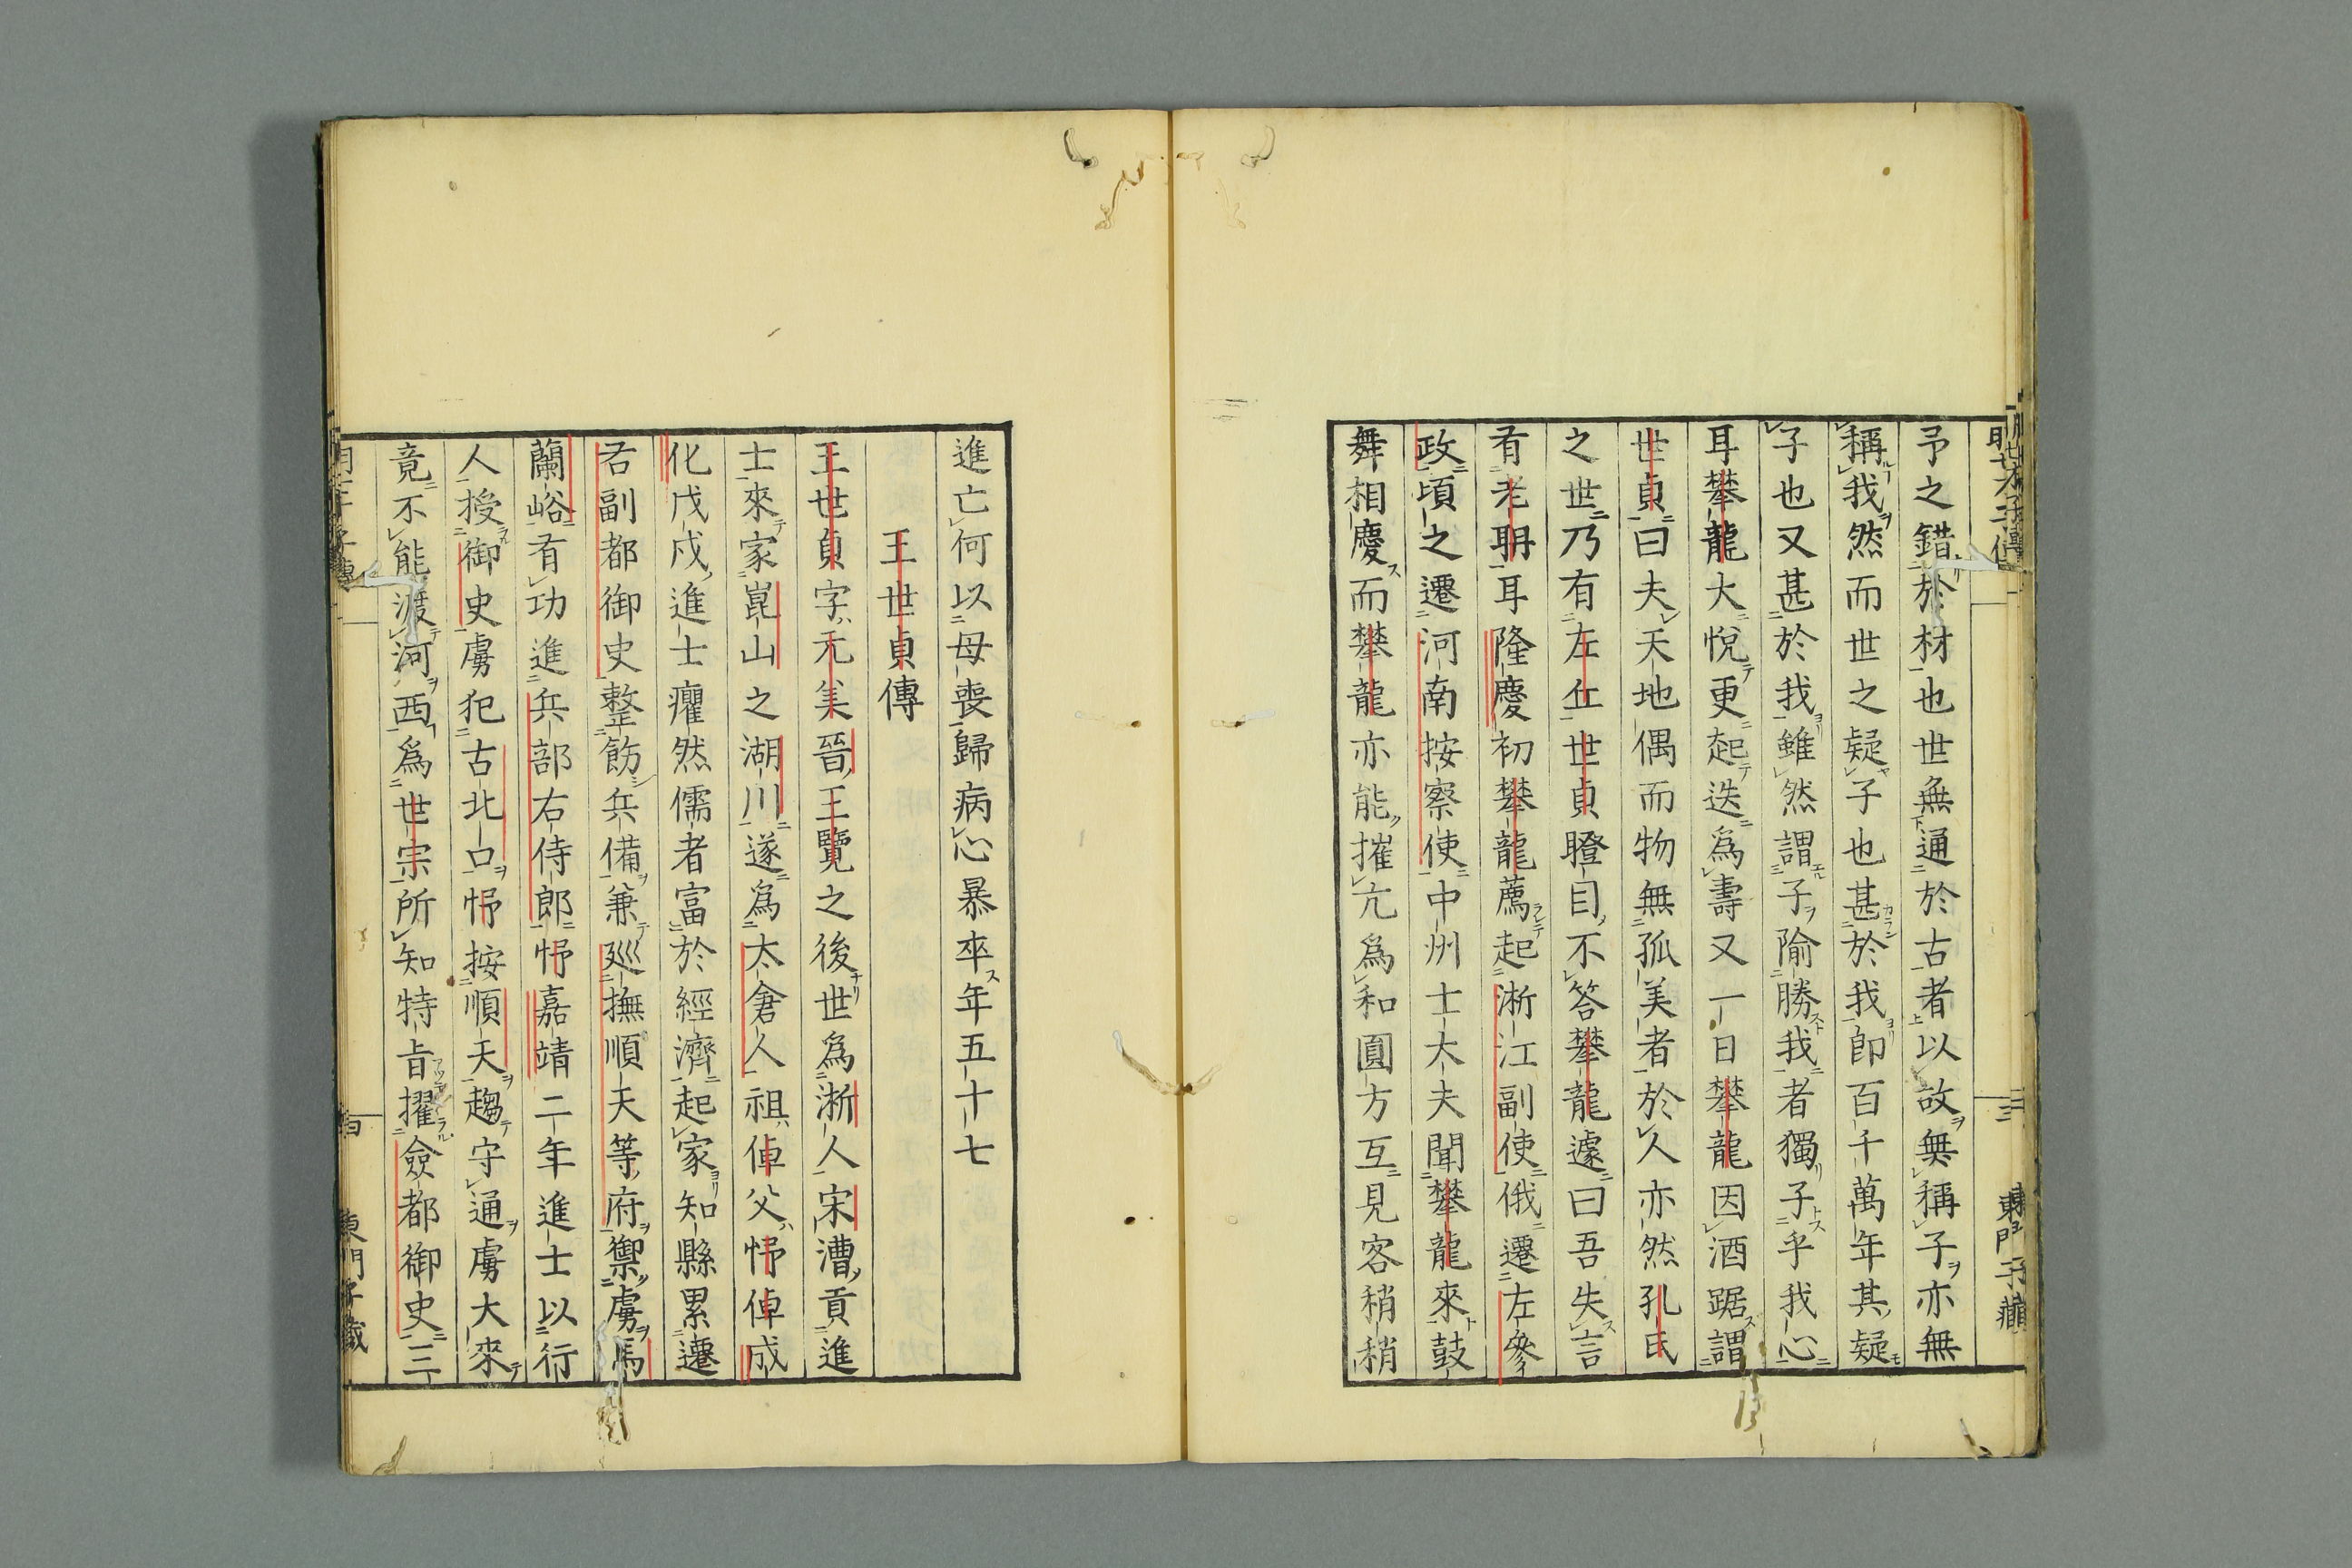 予之錯於材也世無通於古者以故無稱子亦無
稱我然而世之疑子也甚於我即百千萬年其疑
子也又甚於我雖然謂子隃勝我者獨子乎我心
耳攀龍大悅更起迭為壽又一日攀龍因酒踞謂
世貞曰夫天地偶而物無孤美者於人亦然孔氏
之世乃有左丘世貞瞪目不答攀龍遽曰吾失言
有老聃耳隆慶初攀龍薦起浙江副使俄遷左參
政頃之遷河南按察使中州士大夫聞攀龍來鼓
舞相慶而攀龍亦能摧亢為和圓方互見客稍稍
進亡何以母喪歸病心暴卒年五十七
王世貞傳
王世貞字元美晉王覽之後世為浙人宋漕貢進
士來家崑山之湖川遂為太倉人祖倬父忬倬成
化戊戌進士癯然儒者富於經濟起家知縣累遷
右副都御史整飭兵備兼廵撫順天等府禦虜馬
蘭峪有功進兵部右侍郎忬嘉靖二年進士以行
人授御史虜犯古北口忬按順天趨守通虜大來
竟不能渡河西為世宗所知特㫖擢僉都御史三